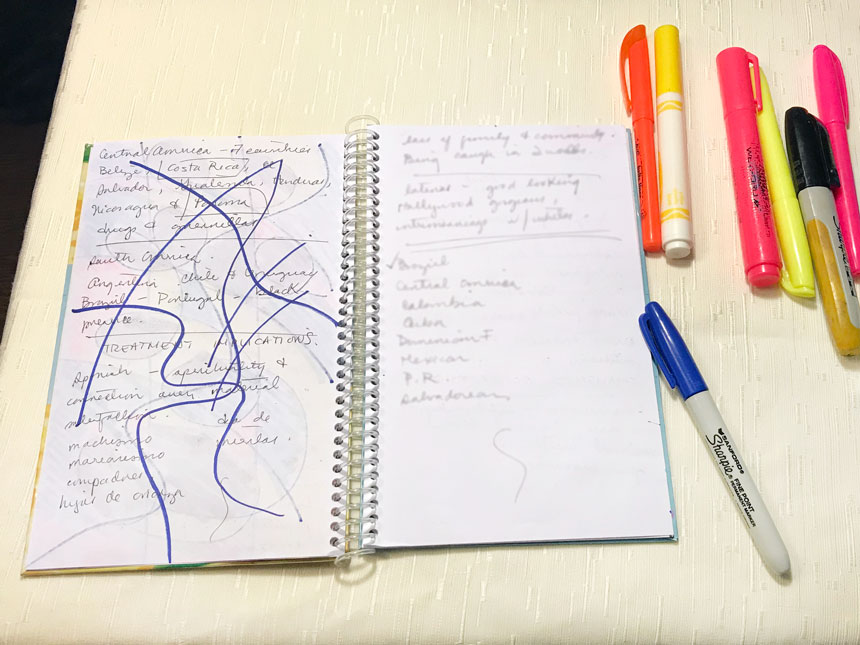 Central America - 7 countries
Belize, Costa Rica, El
Salvador, Guatemala, Honduras,
Nicaragua & Panama
drugs & guerrillas
South America.
Argentina Chile & Uruguay
Brazil - Portugal - Black
presence.
TREATMENT IMPLICATIONS.
Spanish - spirituality &
connection over material
satisfaction.
machismo
dia de
marianismo
compadres
hijos de crianza
loss of family & community.
Being caught in 2 worlds.
latinas - good looking
Hollywood gorgeous,
intermarriages w/ whites.
✓ Brazil
Central America
Colombia
Cuba
Dominican
Mexican
P.R.
Salvadorean
SANFORD
Sharpie
FINE POINT
PERMANENT MARKER